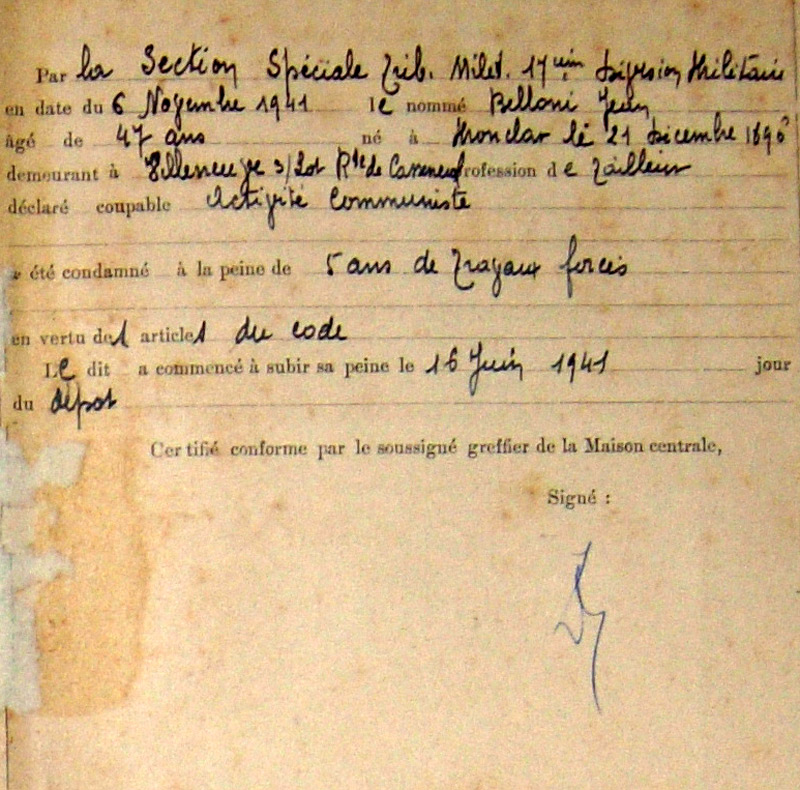 Par la Section Spéciale Trib. Milit. 17ième Division Militaire
en date du 6 Novembre 1941 le nommé Belloni Jean
âgé de 47 ans né à Monclar le 21 Décembre 189
demeurant à Villeneuve s/Lot Rte de Casseneuil profession de Tailleur
déclaré coupable Activité Communiste
a été condamné à la peine de 5 ans de Travaux forcés
en vertu de1 article1 du code
Le dit a commencé à subir sa peine le 16 Juin 1941 jour
du dépot
Certifié conforme par le soussigné greffier de la Maison centrale,
Signé :